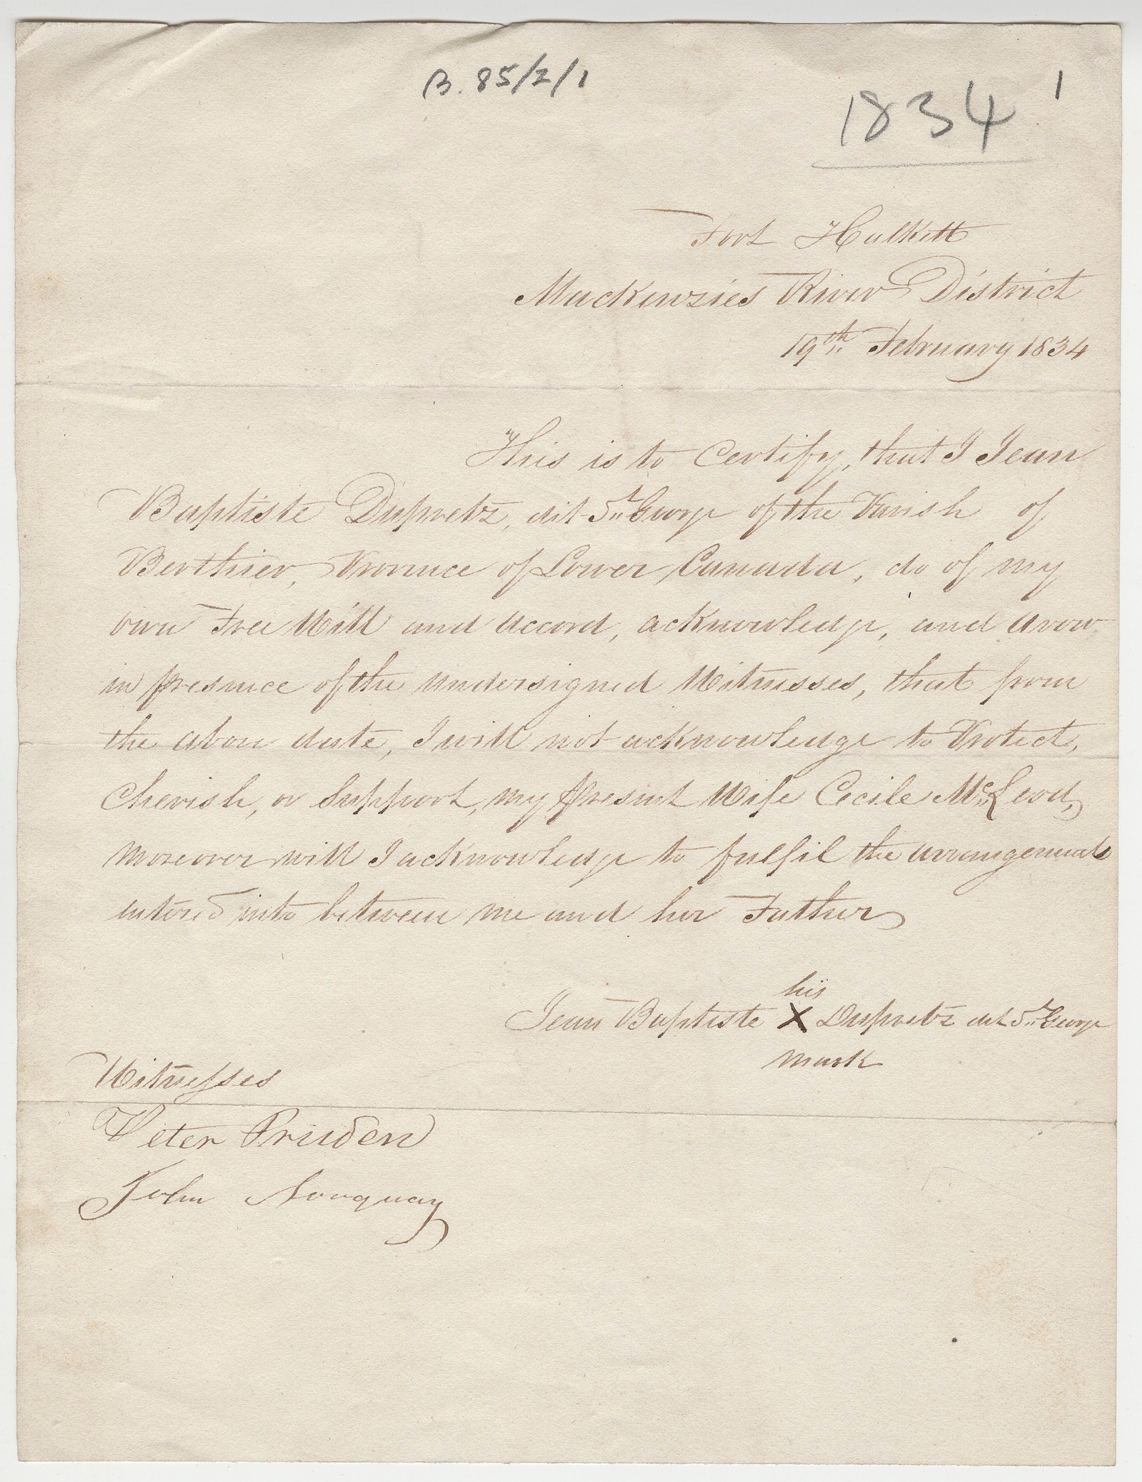 B. 85/2/1
1834 1
Fort Halkett
Mackenzies River District
19th February 1834
This is to Certify, that I Jean
Baptiste Dupretz, dit St. George of the Parish of
Berthier, Province of Lower Canada, do of my
own Free Will and accord, acknowledge, and avow
in presence of the undersigned Witnesses, that from
the above date, I will not acknowledge to Protect,
Cherish, or Support, my present Wife Cecile McLeod,
moreover will I acknowledge to fulfil the arrangements
entered into between me and her Father
his
Jean Baptiste X Dupretz dit St. George
mark
Witnesses
Peter Pruden
John Norquay